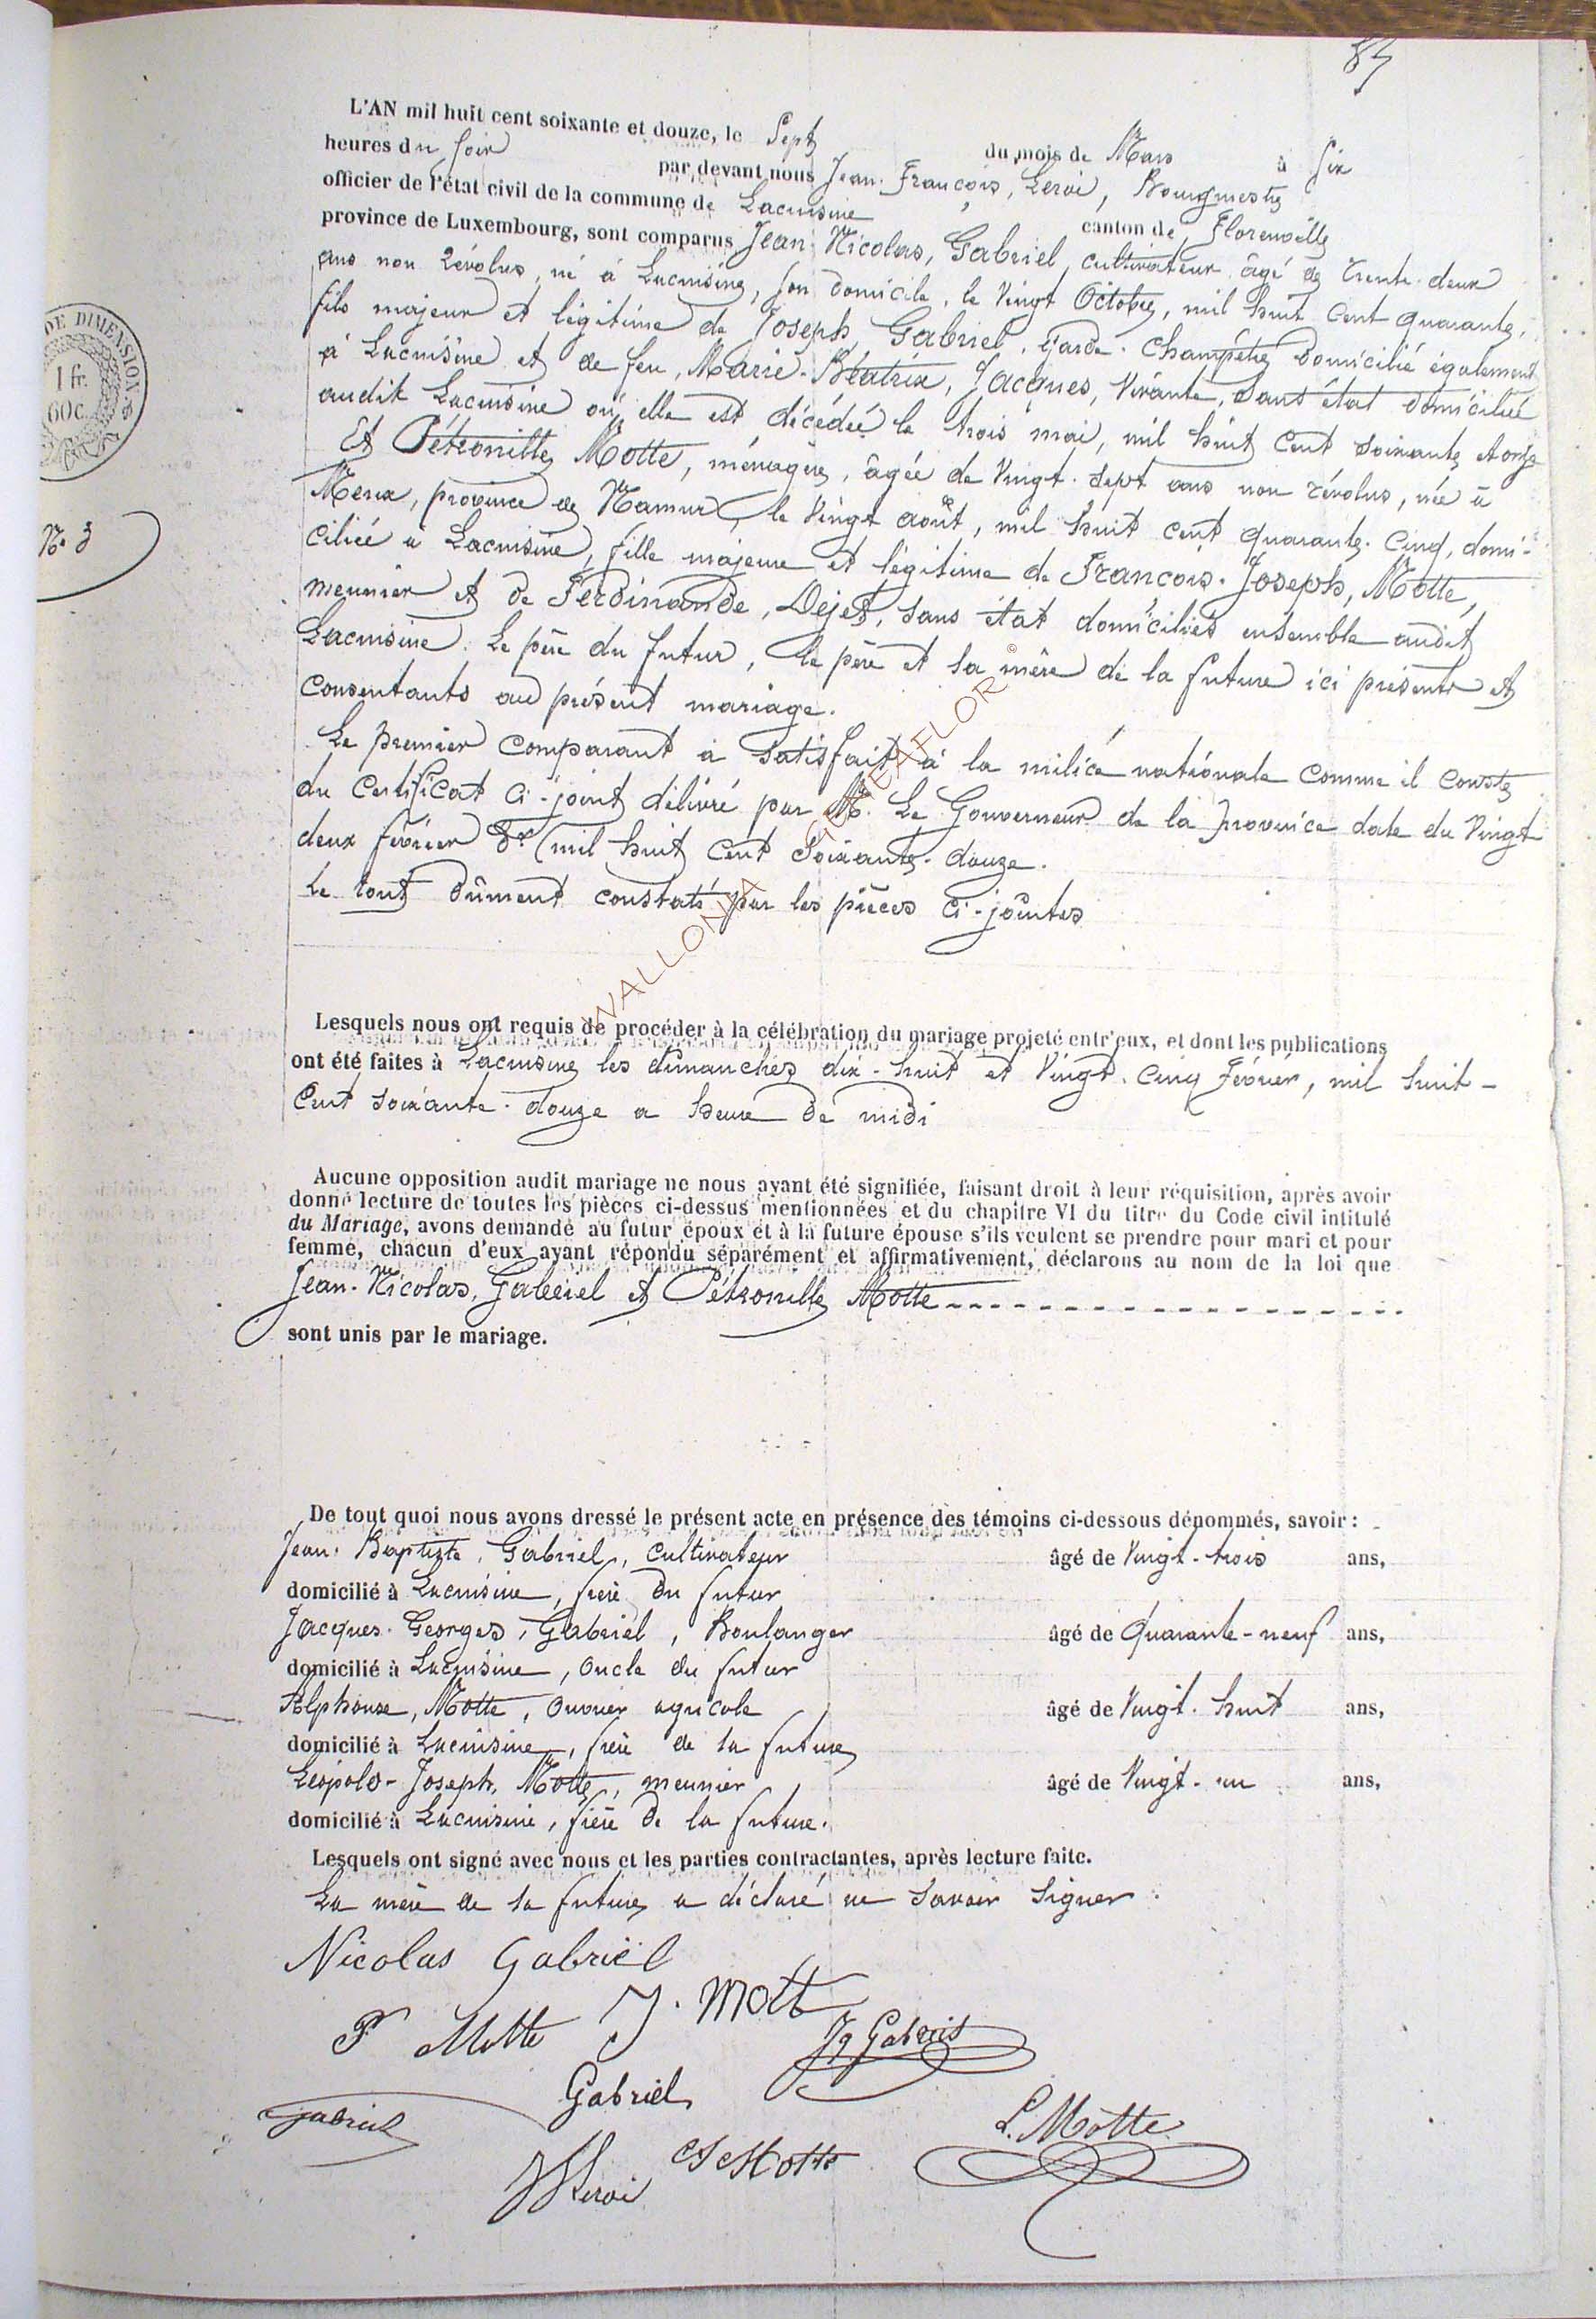 85
L'AN mil huit cent soixante et douze, le Sept du mois de Mars à Six
heures du Soir par devant nous Jean François, Leroi, Bourgmestre
officier de l'état civil de la commune de Lacuisine canton de Florenville
province de Luxembourg, sont comparus Jean Nicolas, Gabriel, cultivateur âgé de trente-deux
ans non révolus, né à Lacuisine, son domicile, le Vingt Octobre, mil huit cent quarante,
fils majeur et légitime de Joseph Gabriel, Garde-Champêtre domicilié également
à Lacuisine et de feu, Marie-Béatrix, Jacques, Vivante, sans état domiciliée
audit Lacuisine où elle est décédée le trois mai, mil huit cent soixante et onze
Et Pétronille Motte, ménagère, âgée de Vingt-sept ans non révolus, née à
Meux, province de Namur, le Vingt août, mil huit cent quarante-cinq, domi-
ciliée à Lacuisine, fille majeure et légitime de François-Joseph, Motte,
meunier et de Ferdinande, Dejet, sans état domiciliés ensemble audit
Lacuisine. Le père du futur, le père et la mère de la future ici présents et
consentants au présent mariage.
Le premier comparant a satisfait à la milice nationale comme il conste
du certificat ci-joint délivré par Mr. Le Gouverneur de la province date du Vingt
deux février dr (mil huit cent soixante-douze.
Le tout dûment constaté par les pièces ci-jointes
WALLONIA GENEAFLOR ©
Lesquels nous ont requis de procéder à la célébration du mariage projeté entr'eux, et dont les publications
ont été faites à Lacuisine les dimanches dix-huit et Vingt-cinq Février, mil huit-
Cent soixante-douze a heure de midi
Aucune opposition audit mariage ne nous ayant été signifiée, faisant droit à leur réquisition, après avoir
donné lecture de toutes les pièces ci-dessus mentionnées et du chapitre VI du titre du Code civil intitulé
du Mariage, avons demandé au futur époux et à la future épouse s'ils veulent se prendre pour mari et pour
femme, chacun d'eux ayant répondu séparément et affirmativement, déclarons au nom de la loi que
Jean-Nicolas, Gabriel et Pétronille Motte
sont unis par le mariage.
De tout quoi nous avons dressé le présent acte en présence des témoins ci-dessous dénommés, savoir :
Jean-Baptiste, Gabriel, cultivateur âgé de Vingt-trois ans,
domicilié à Lacuisine, frère du futur
Jacques-Georges, Gabriel, Boulanger âgé de Quarante-neuf ans,
domicilié à Lacuisine, oncle du futur
Alphonse, Motte, ouvrier agricole âgé de Vingt-huit ans,
domicilié à Lacuisine, frère de la future
Léopold-Joseph, Motte, meunier âgé de Vingt-un ans,
domicilié à Lacuisine, frère de la future.
Lesquels ont signé avec nous et les parties contractantes, après lecture faite.
La mère de la future a déclaré ne savoir signer.
Nicolas Gabriël
P Motte J. Mott
Jq Gabriel
Gabriel
Gabriel
L. Motte
Motte
JfLeroi
DE DIMENSION.
1 fr.
60c.
No. 3